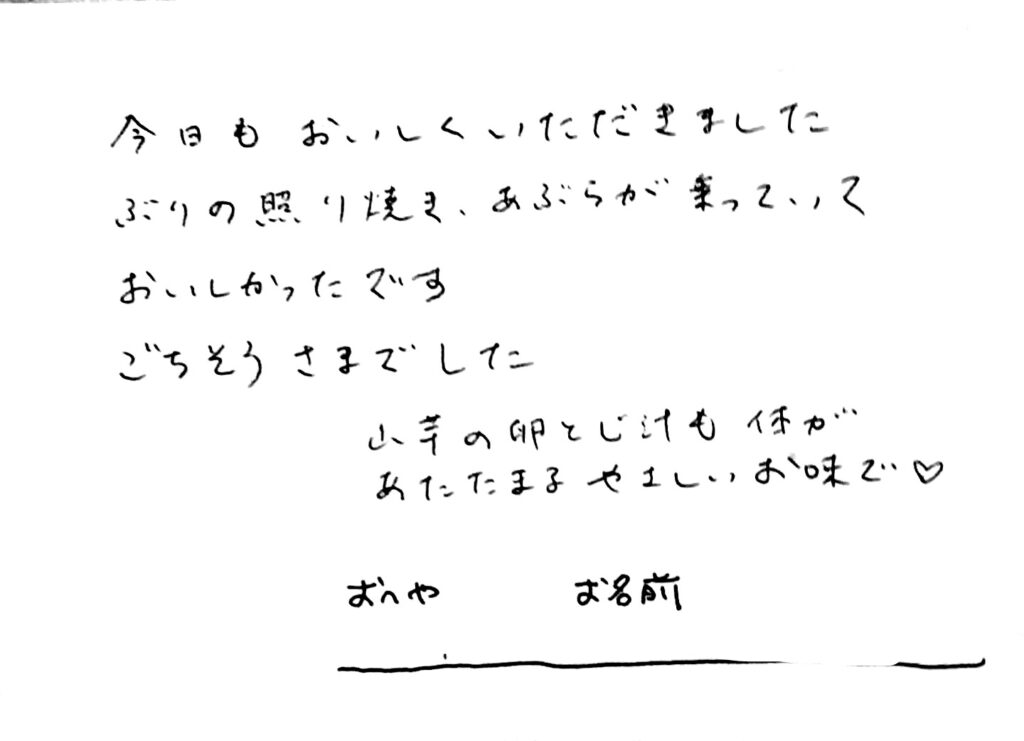 今日も おいしくいただきました
ぶりの照り焼き、あぶらが乗っていて
おいしかったです
ごちそうさまでした
山芋の卵とじ汁も 体が
あたたまる やさしいお味で♡
おへや お名前